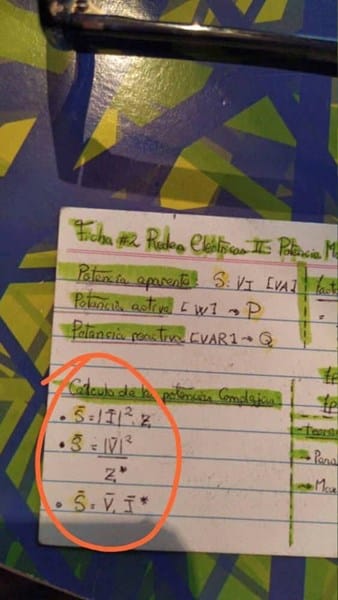 Ficha #2 Redes Eléctricas II: Potencia
Potencia aparente S: VI [VA]
Potencia activa [W] → P
Potencia reactiva [VAR] → Q
Cálculo de las potencias Complejas
• S̄ = |Ī|² . Z
• S̄ = |V̄|²
Z*
• S̄ = V̄. Ī*
→ Para